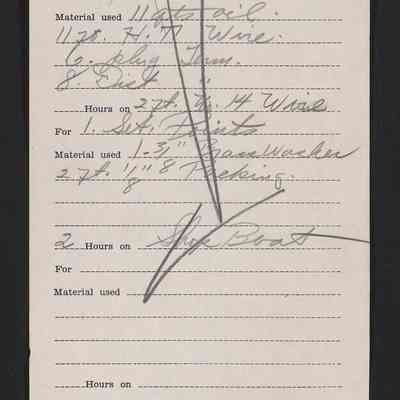 Material used 11 qts oil.
11 ft. H. T. Wire.
6. plug Term.
8. Dist "
Hours on 2 ft. No. 14 Wire
For 1. Set. Points
Material used 1-3/8" Brass Washer
2 ft. 1/8" Packing.
2 Hours on Shop Boat
For
Material used
Hours on